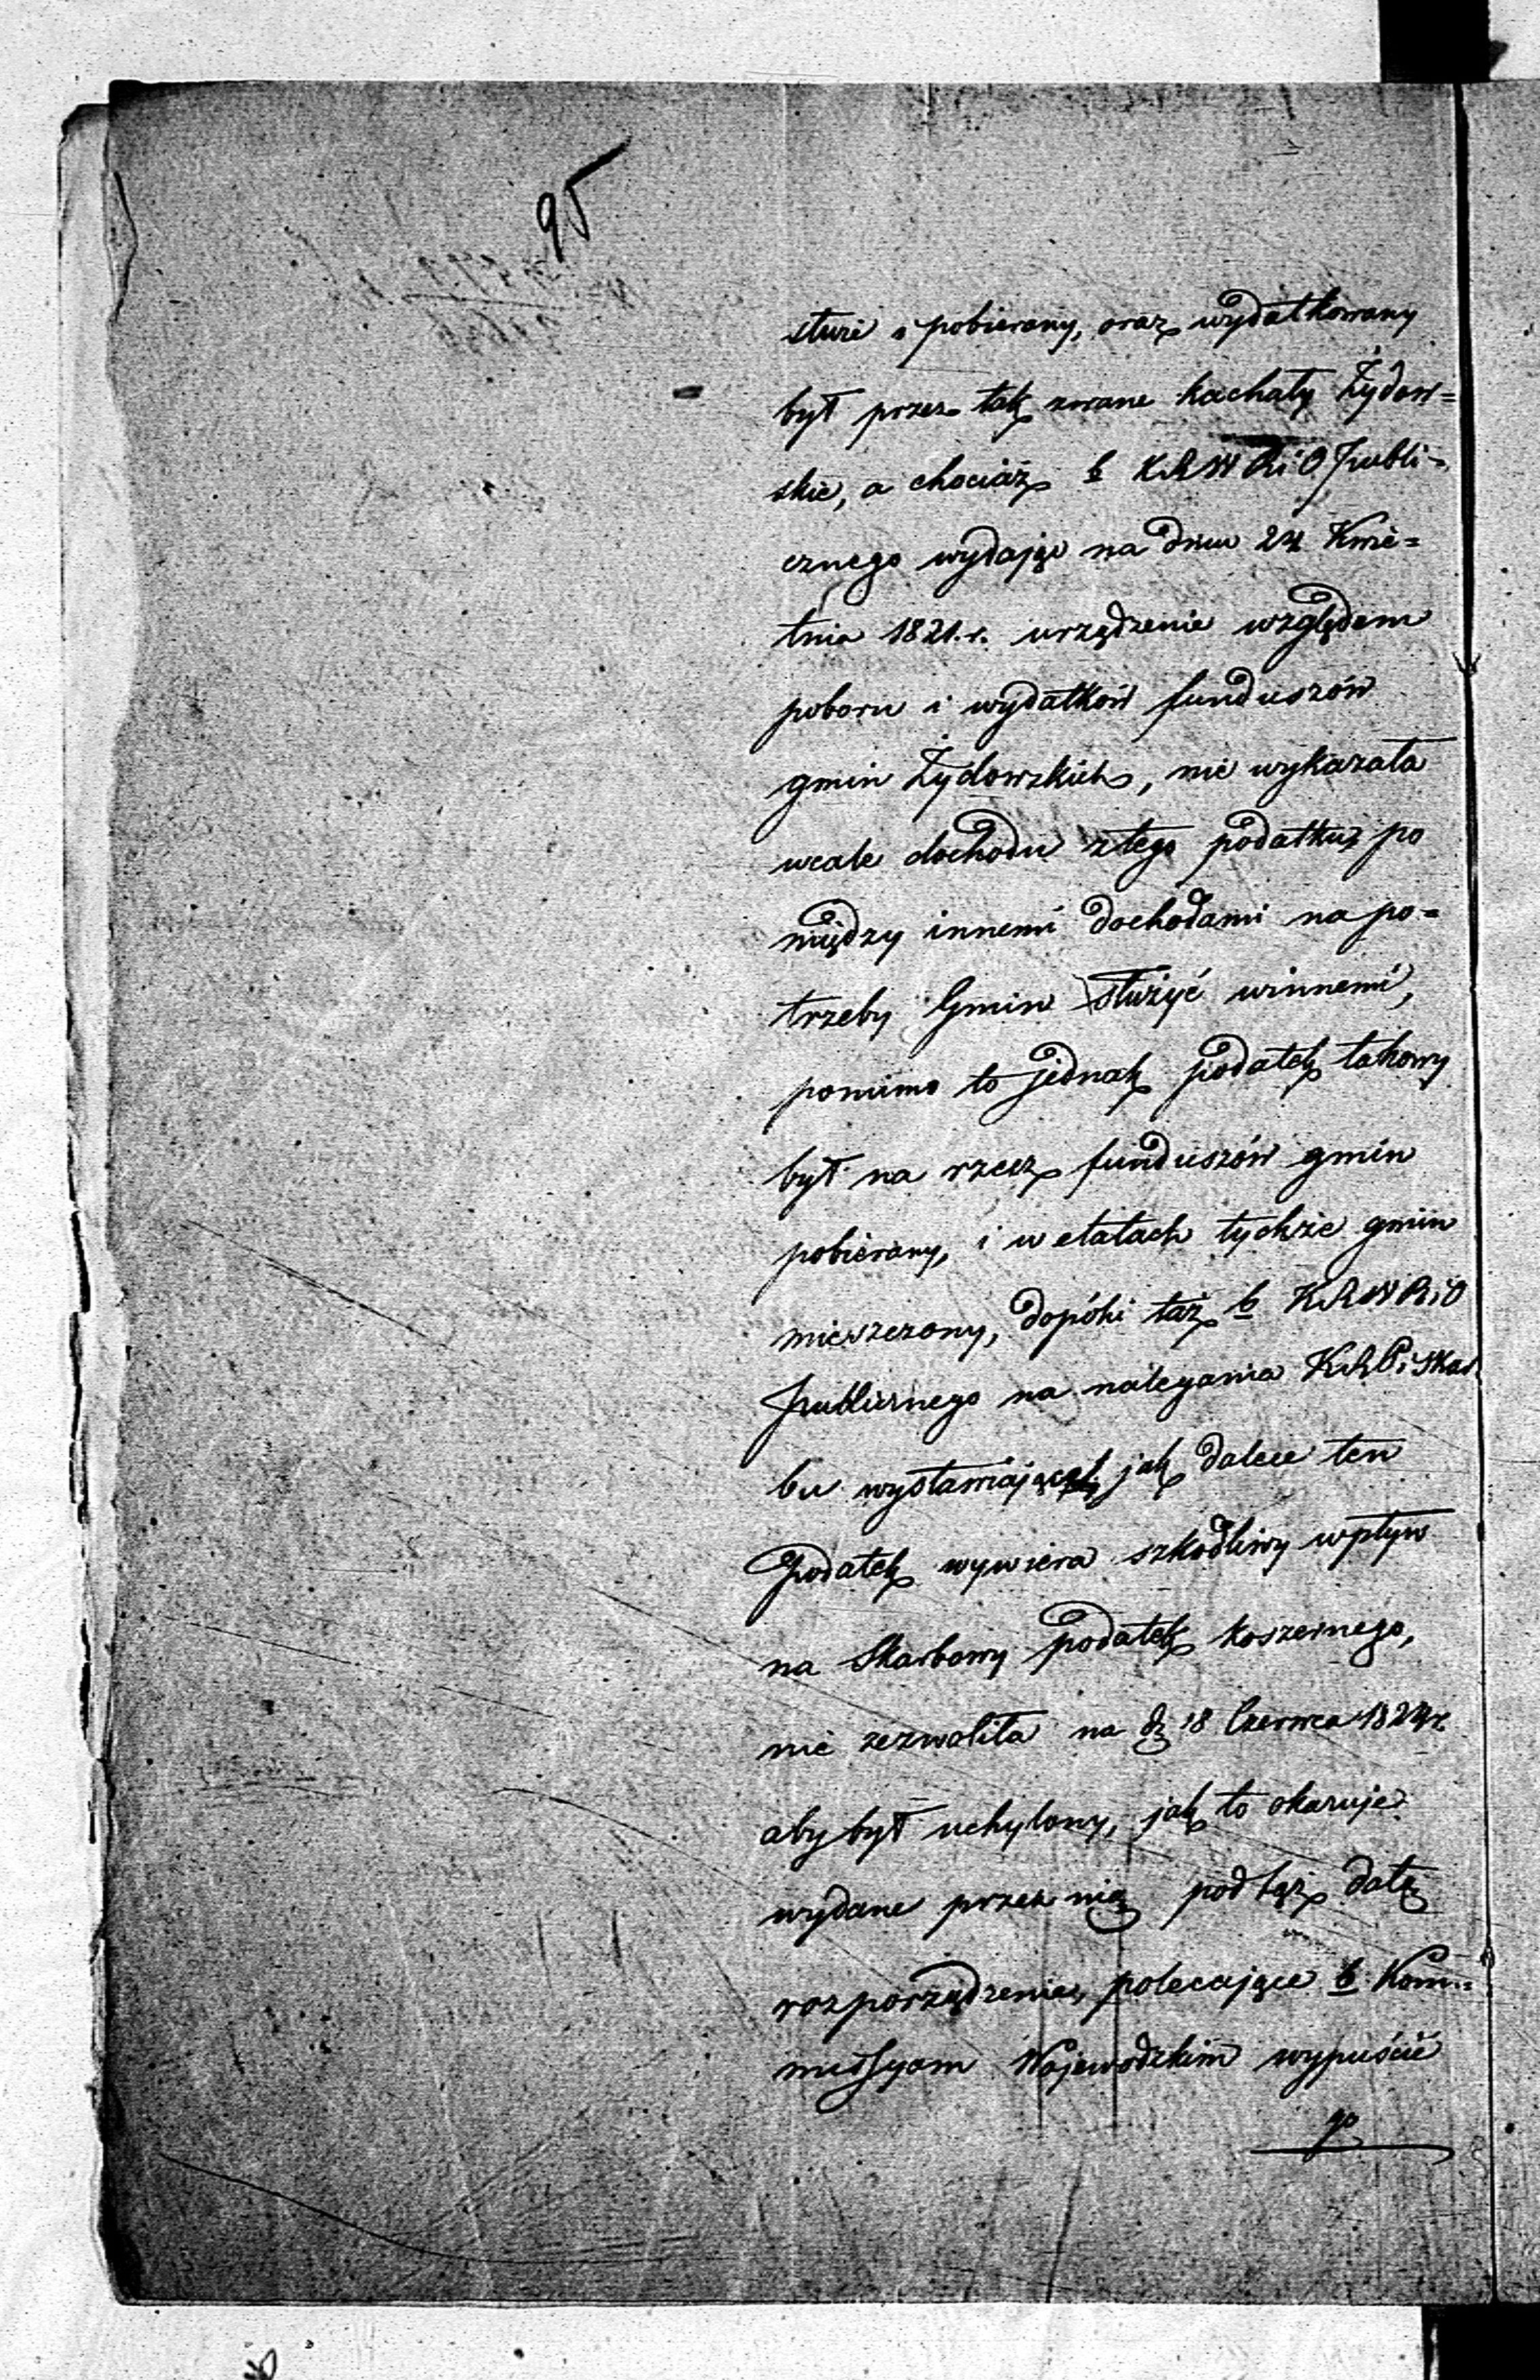 95
stwie i pobierany, oraz wydatkowany
był przez tak zwane kachały Żydow=
skie, a chociaż b KRWRiO Publi=
cznego wydając na dniu 24 Kwie=
tnia 1821.r. urządzenie względem
poboru i wydatków funduszów
gmin Żydowskich, nie wykazała
wcale dochodu z tego podatku, po
między innemi dochodami na po=
trzeby Gmin służyć winnemi,
pomimo to jednak podatek takowy
był na rzecz funduszów gmin
pobierany, i w etatach tychże gmin
mieszczony, dopóki taż b KRWRiO
Publicznego na nalegania KRPiSkar
bu wystawiającej jak dalece ten
Podatek wywiera szkodliwy wpływ
na Skarbowy podatek koszernego,
nie zezwoliła na d. 18 Czerwca 1824r.
aby był uchylony, jak to okazuje
wydane przez nią pod tąż datą
rozporządzenie, polecające b. Kom=
missyom Wojewódzkim wypuścić
go